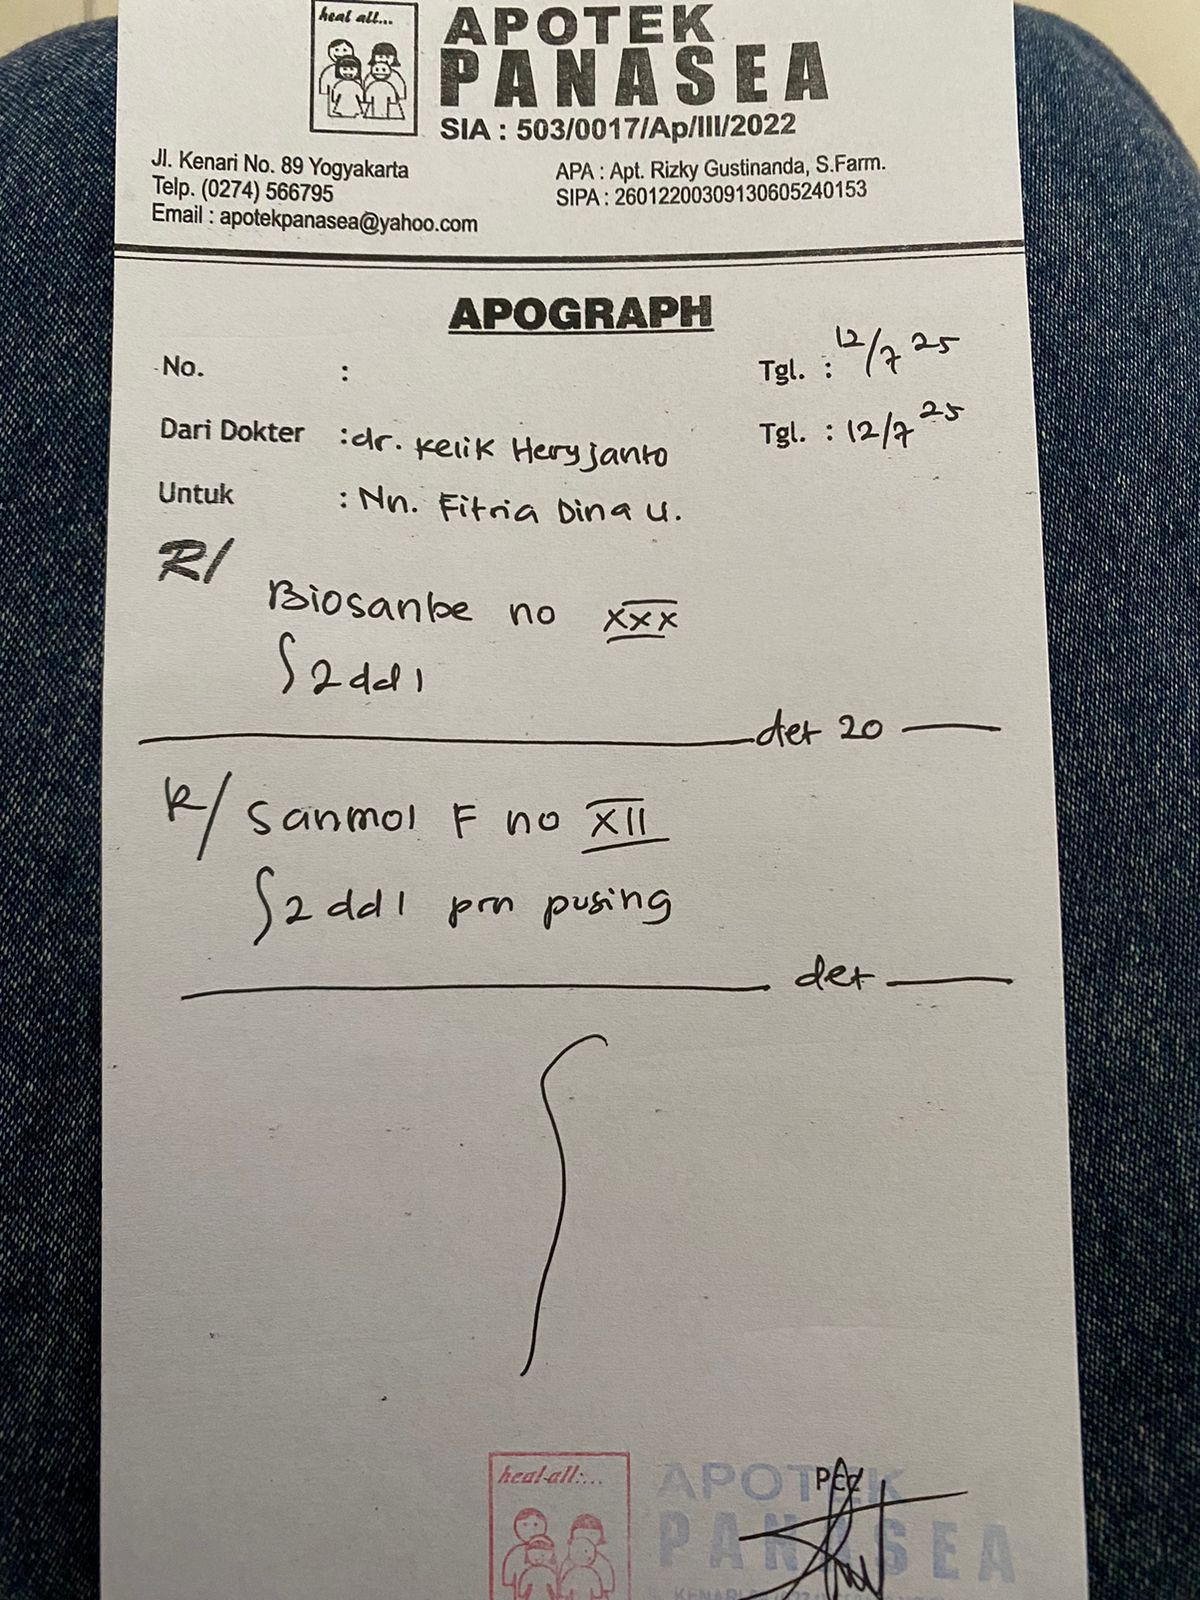 heal all...
APOTEK
PANASEA
SIA : 503/0017/Ap/III/2022
Jl. Kenari No. 89 Yogyakarta
Telp. (0274) 566795
Email : apotekpanasea@yahoo.com
APA : Apt. Rizky Gustinanda, S.Farm.
SIPA : 26012200309130605240153
APOGRAPH
No. :
Tgl. : 12/7 25
Dari Dokter : dr. Kelik Heryjanto
Tgl. : 12/7 25
Untuk : Nn. Fitria Dina U.
R/
Biosanbe no XXX
ʃ 2 dd 1
det 20
R/ Sanmol F no XII
ʃ 2 dd 1 prn pusing
det
heal all:...
APOTEK
PCC
PANASEA